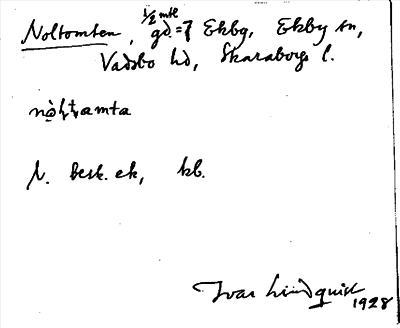 1/2 mtl
Noltomten, gd. = 7 Ekbg, Ekby sn,
Vadsbo hd, Skaraborgs l.
N. besk. ek, kb.
Ivar Lindquist
1928